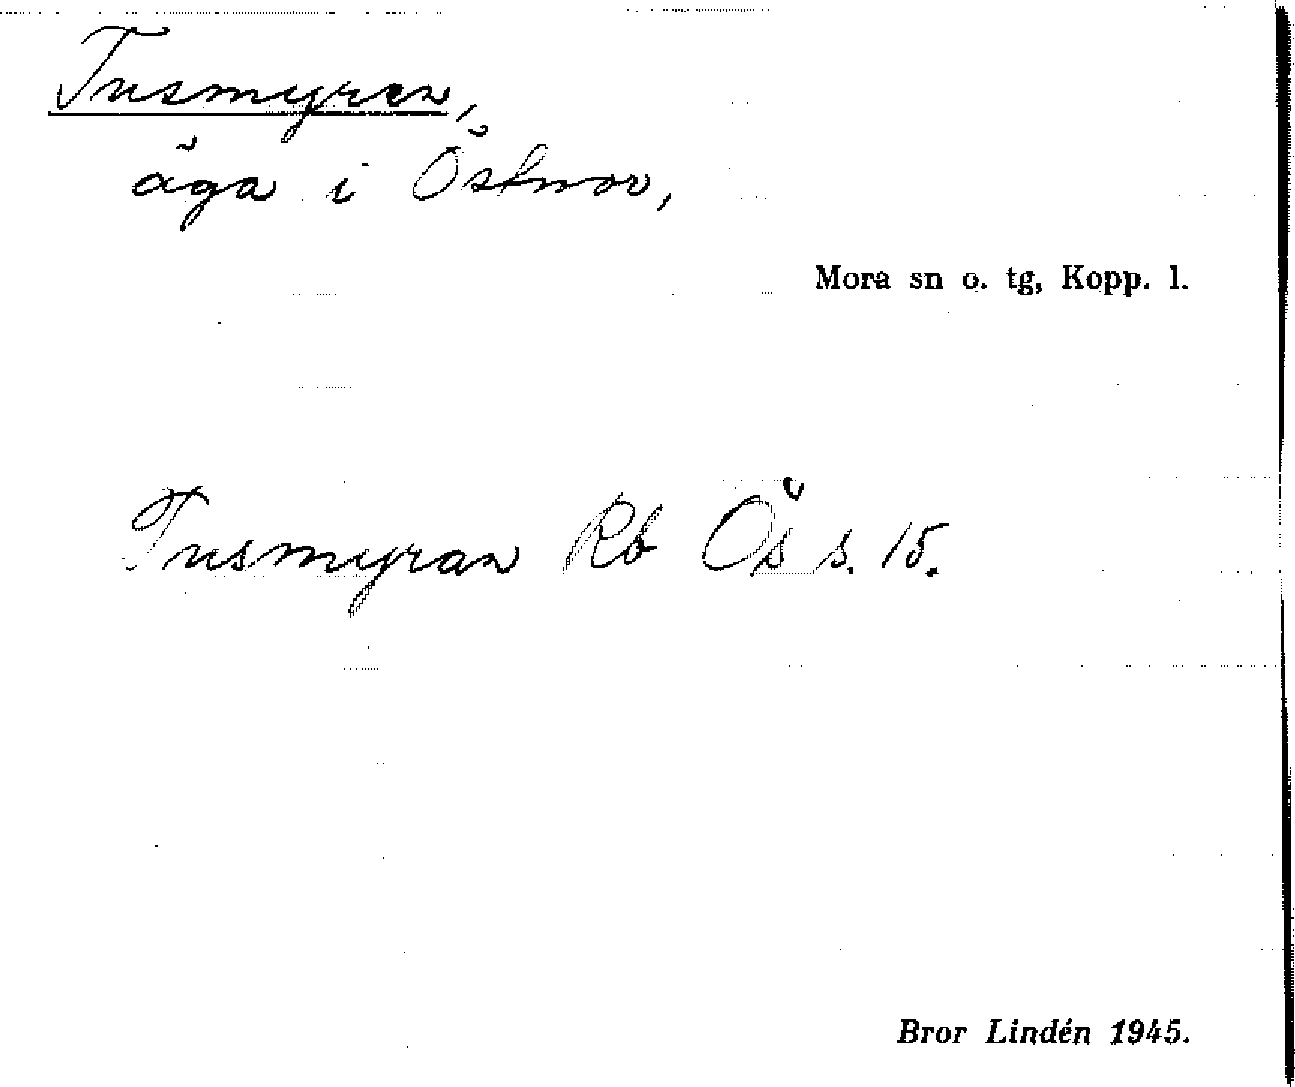 Tusmyren,
äga i Östnor,
Mora sn o. tg, Kopp. l.
Tusmyran Rb Ös s. 15.
Bror Lindén 1945.